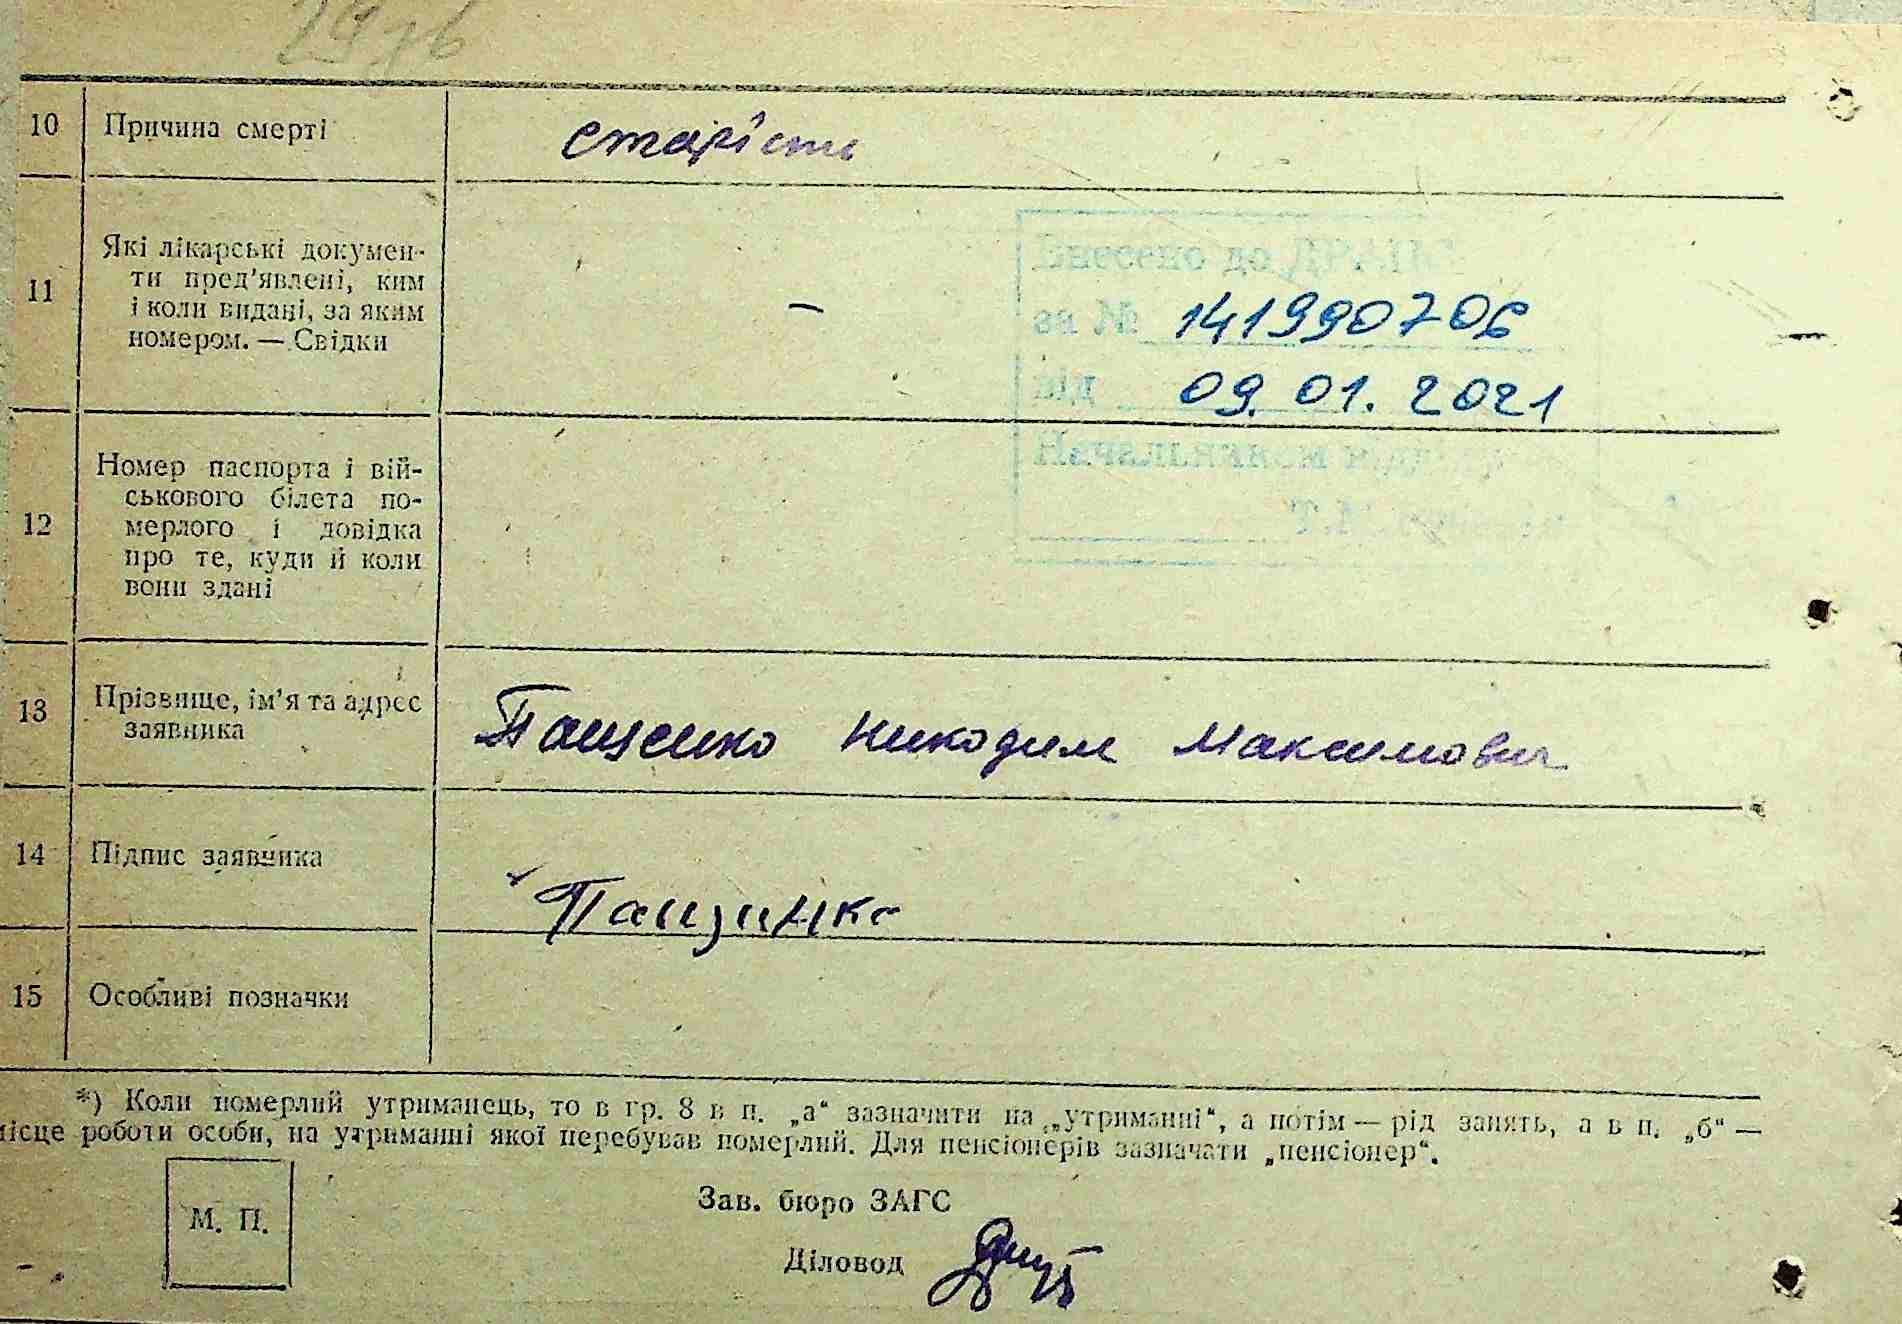 10 Причина смерті старість
11 Які лікарські докумен-
ти пред'явлені, ким
і коли видані, за яким
номером. — Свідки
–
Внесено до
за № 141990706
від 09.01.2021
Начальником
12 Номер паспорта і вій-
ськового білета по-
мерлого і довідка
про те, куди й коли
вони здані
13 Прізвище, ім'я та адрес
заявника
Пащенко Никодим Максимович
14 Підпис заявника
15 Особливі позначки
*) Коли померлий утриманець, то в гр. 8 в п. „а“ зазначити на „утриманні“, а потім — рід занять, а в п. „б“ —
місце роботи особи, на утриманні якої перебував померлий. Для пенсіонерів зазначати „пенсіонер“.
М. П.
Зав. бюро ЗАГС
Діловод